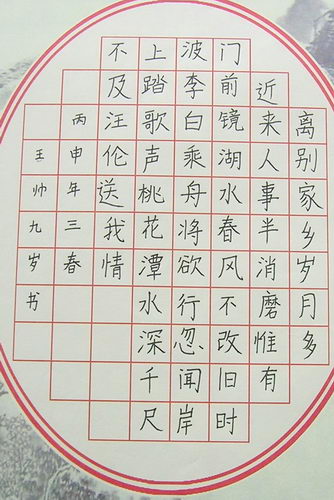 离别家乡岁月多
近来人事半消磨惟有
门前镜湖水春风不改旧时
波李白乘舟将欲行忽闻岸
上踏歌声桃花潭水深千尺
不及汪伦送我情
丙申年三春
王帅九岁书